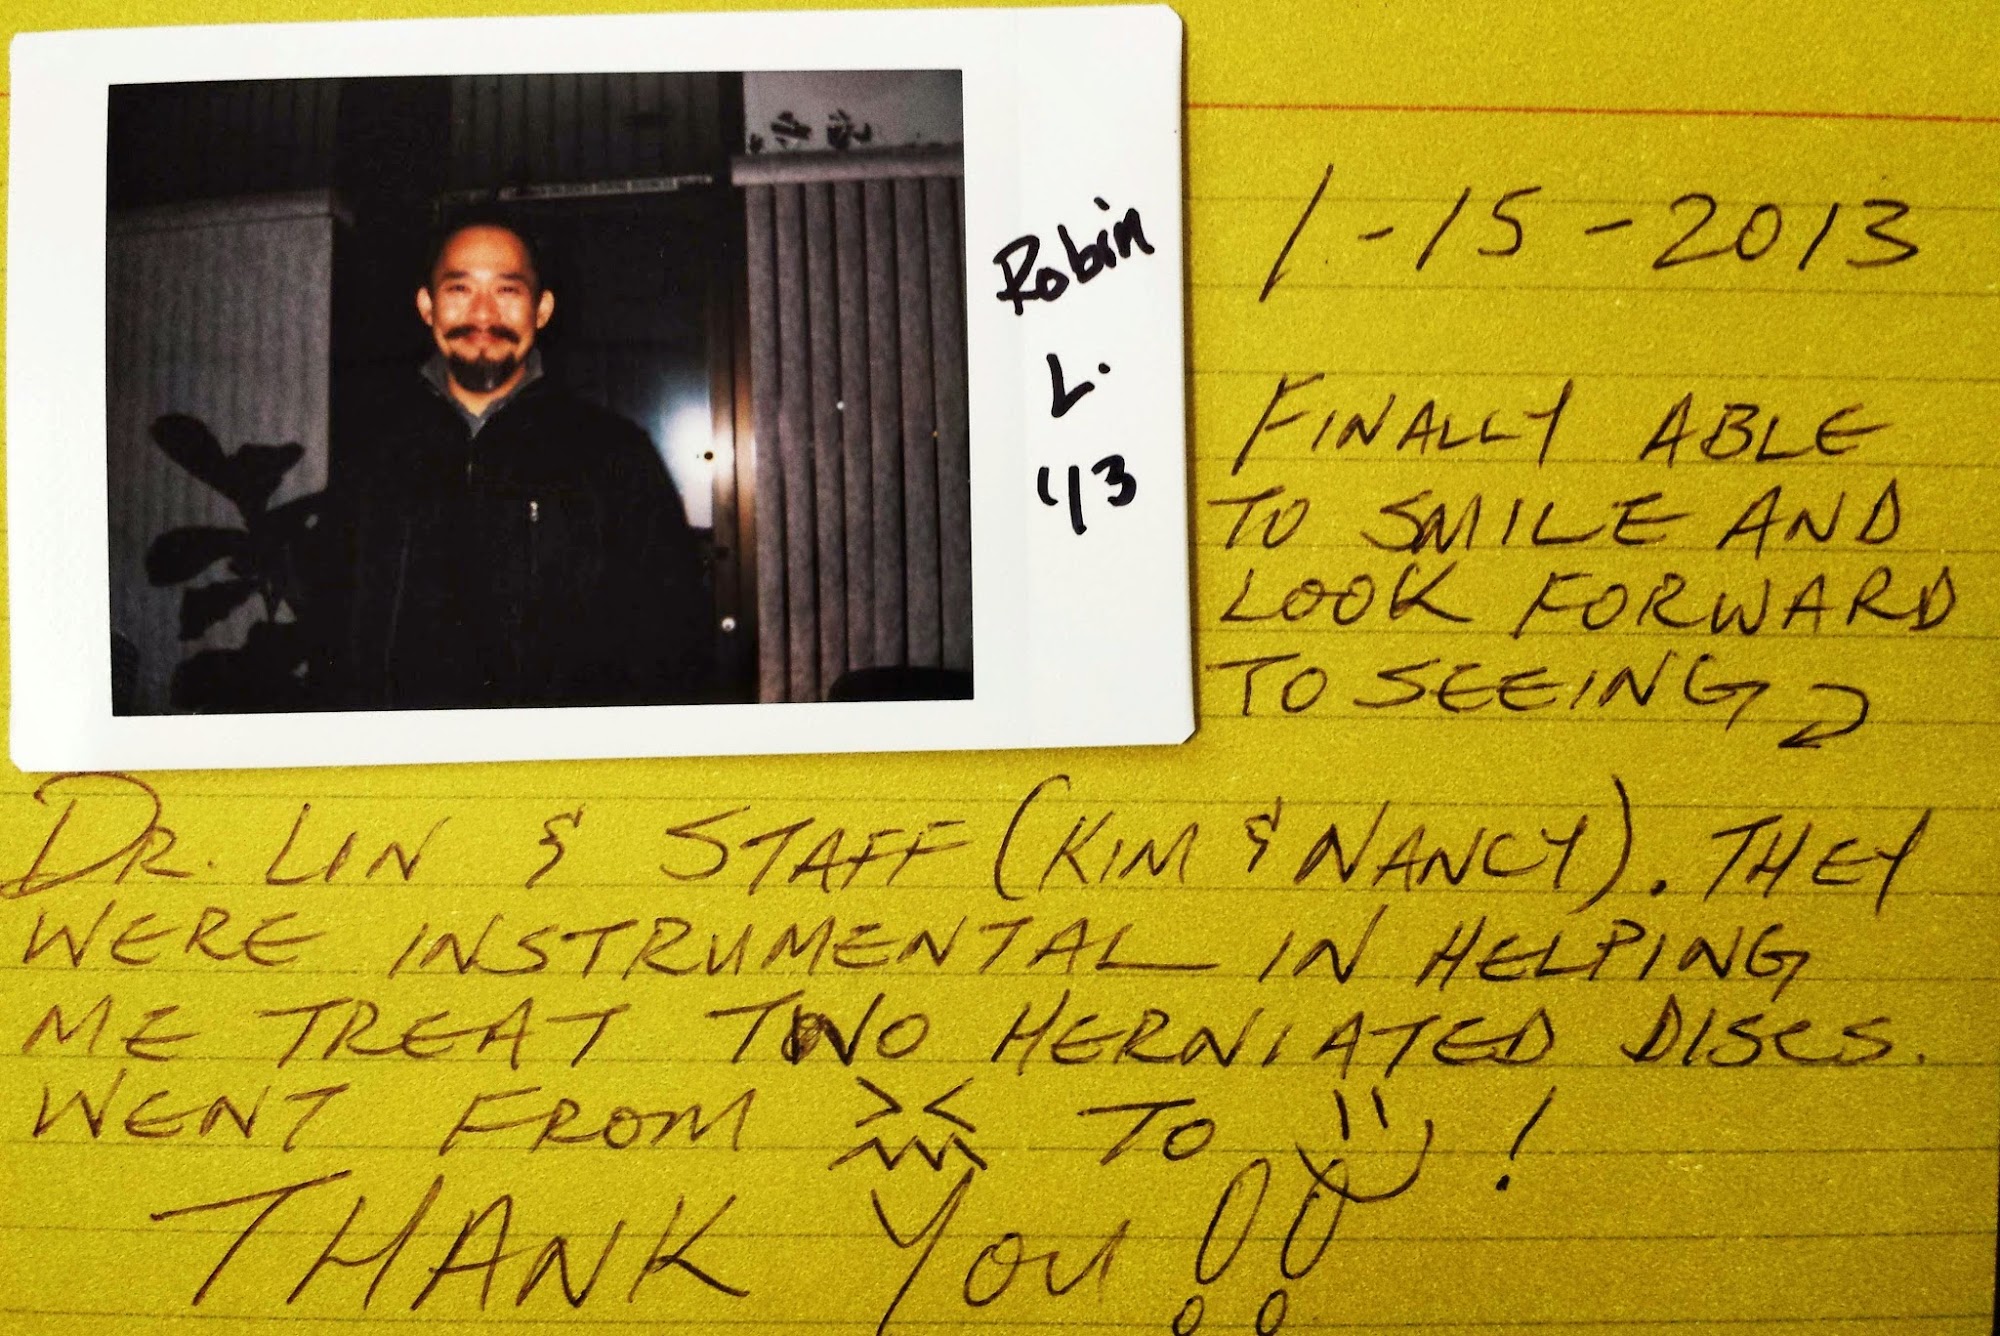 Robin
L.
'13
1-15-2013
FINALLY ABLE
TO SMILE AND
LOOK FORWARD
TO SEEING
DR. LIN & STAFF (KIM & NANCY). THEY
WERE INSTRUMENTAL IN HELPING
ME TREAT TWO HERNIATED DISCS.
WENT FROM TO !
THANK YOU!!